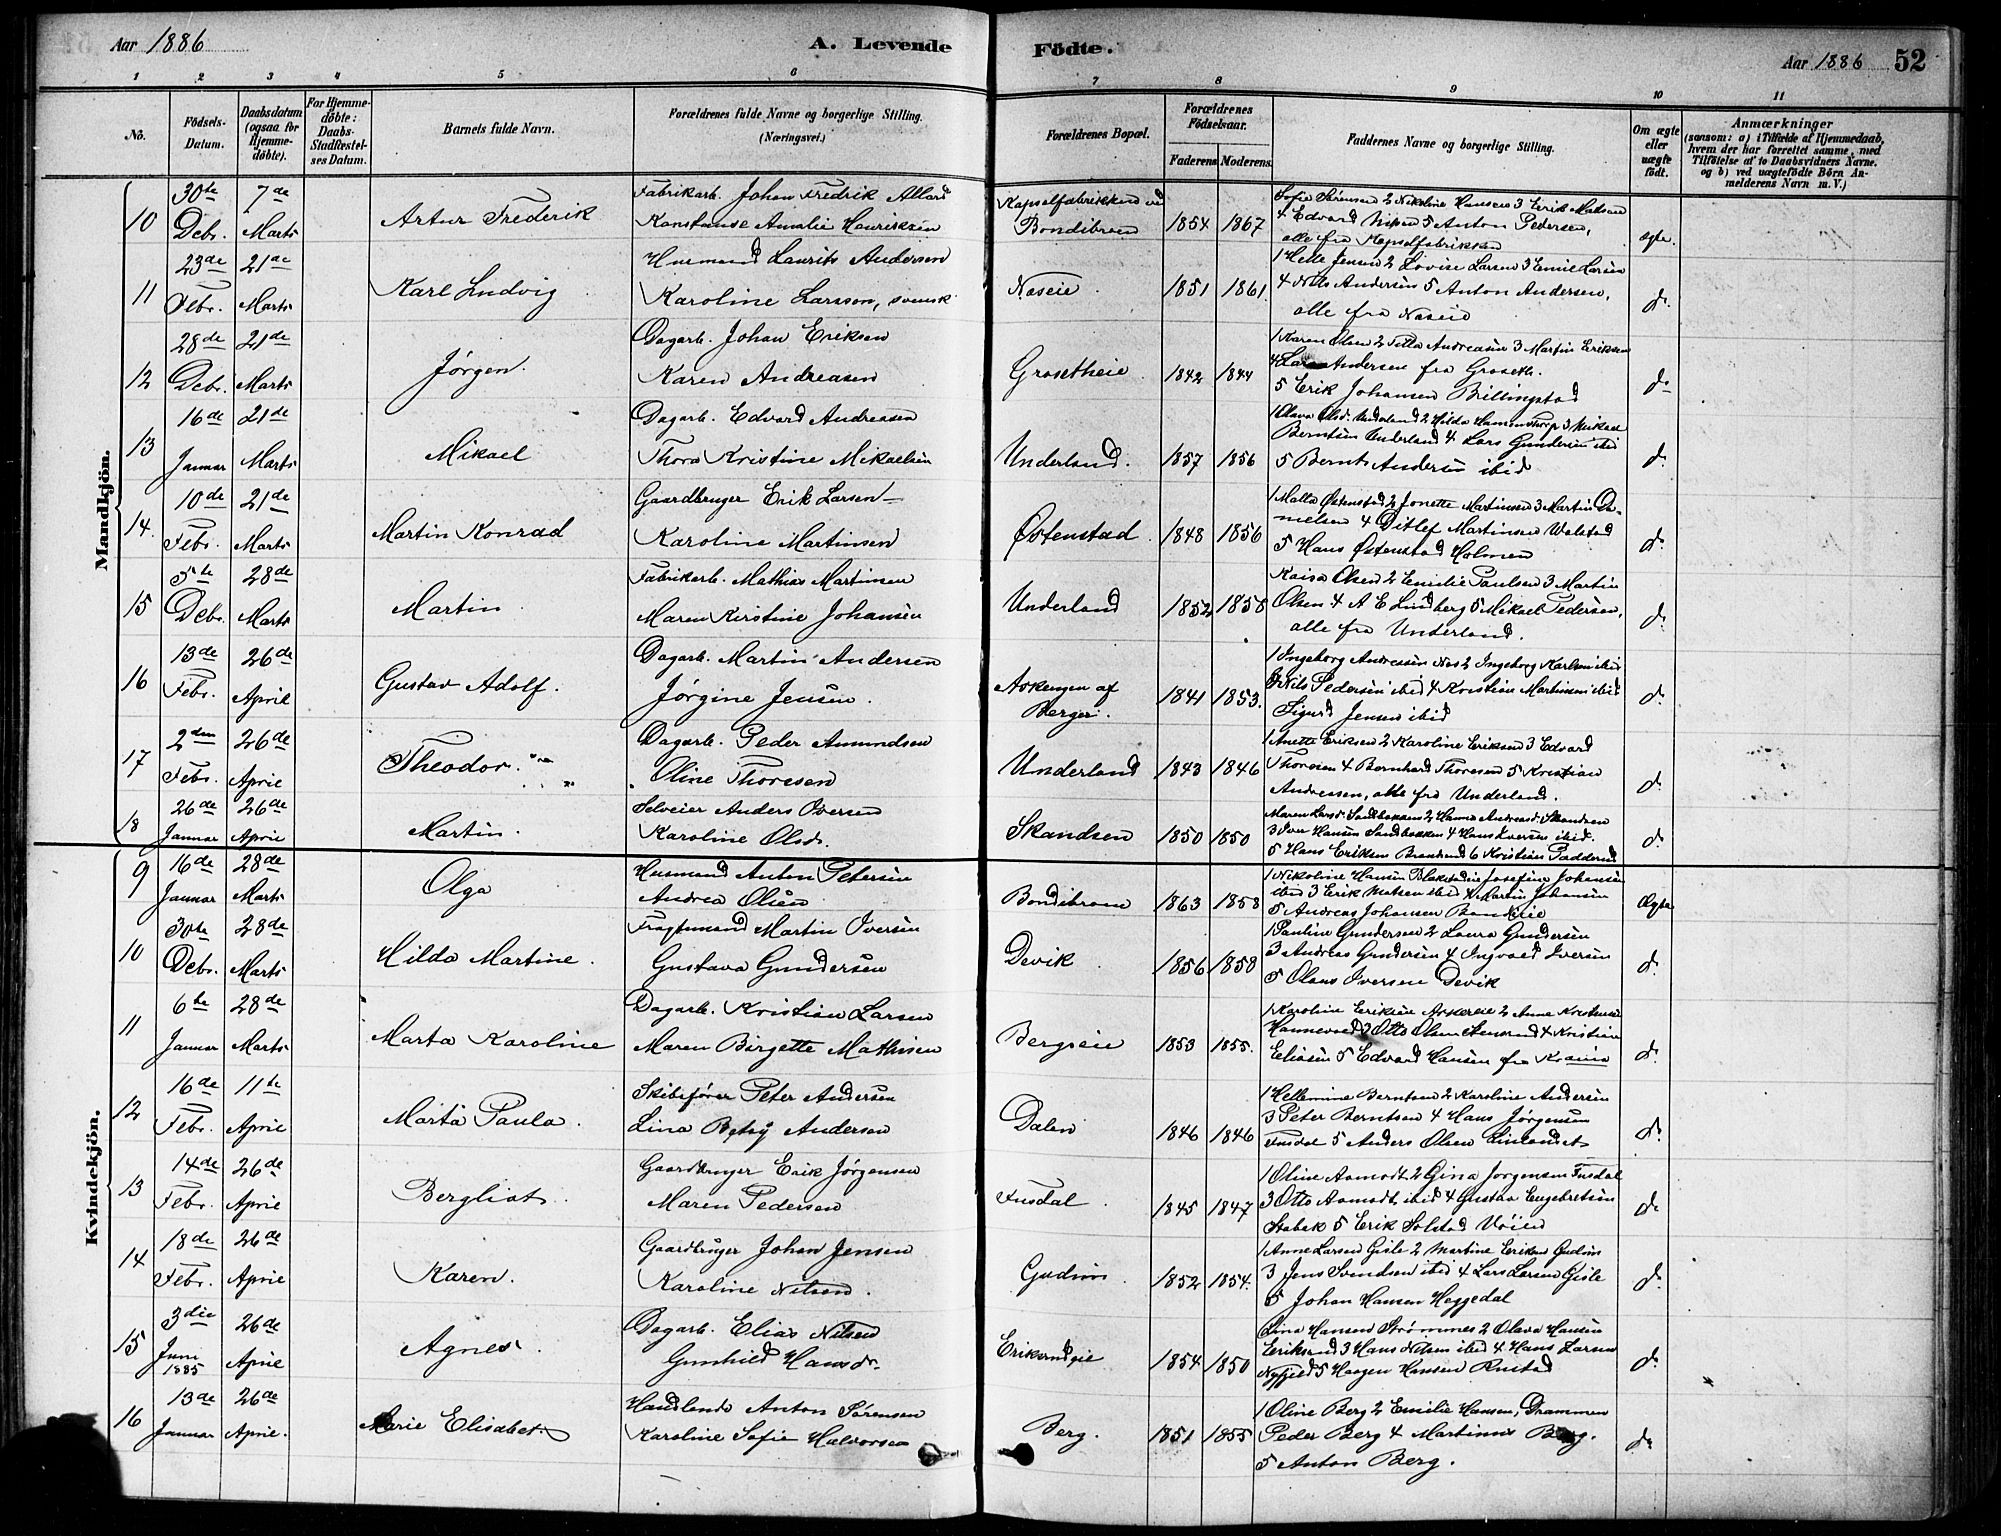 Aar 1886
A. Levende
Födte.
Aar 1886 52
1 2 3 4 5 6 7 8 9 10 11
No.
Födsels-Datum.
Daabsdatum (ogsaa for Hjemme-döbte).
For Hjemme-döbte: Daabs-Stadfæstel-ses Datum.
Barnets fulde Navn.
Forældrenes fulde Navne og borgerlige Stilling. (Næringsvei.)
Forældrenes Bopæl.
Forældrenes Födselsaar.
Faderens Moderens.
Faddernes Navne og borgerlige Stilling.
Om ægte eller uægte födt.
Anmærkninger
(saasom: a) i Tilfælde af Hjemmedaab, hvem der har forrettet samme, med Tilföielse af to Daabsvidners Navne, og b) ved uægtefödte Börn An-melderens Navn m. V.)
Mandkjön.
10 30te Debr. 7de Marts Artur Frederik
Fabrikarb. Johan Fredrik Allard
Konstanse Amalie Henriksen
Kapselfabrikken ved
Bondibroen 1854 1867
Sofie Sørensen 2 Nikoline Hansen 3 Erik Matsen
4 Edvard 5 Anton Pedersen,
alle fra Kapselfabrikken
ægte.
11 23de Febr. 21de Marts Karl Ludvig
Husmand Laurits Andersen
Karoline Larsson, svensk
Næseie 1851 1861
1 Helle Jensen 2 Lovise Larsen 3 Emil Larsen
4 Nils Andersen 5 Anton Andersen,
alle fra Næseie
do
12 28de Debr. 21de Marts Jørgen.
Dagarb. Johan Eriksen
Karen Andreasen
Grosetheie 1842 1844
1 Karen Olsen 2 Andreasen 3 Martin Eriksen
4 Lars Andersen fra Groseth.
5 Erik Johansen Billingstad
do
13 16de Januar 21de Marts Mikael
Dagarb. Edvard Andreasen
Thora Kristine Mikaelsen
Underland. 1857 1856
1 Olava Olsd. Underland 2 Hilda 3 Mikael
Berntsen Underland 4 Lars Gundersen ibid
5 Bernt Andersen ibid
do
14. 10de Febr. 21de Marts Martin Konrad
Gaardbruger Erik Larsen
Karoline Martinsen
Østenstad 1848 1856
1 Østenstad 2 Jonette Martinsen 3 Martin Da-
nielsen 4 Ditlef Martinsen Walstad
5 Hans Østenstad Holmen
do
15 5te Debr. 28de Marts Martin
Fabrikarb. Mathias Martinsen
Maren Kirstine Johansen
Underland 1852 1858
Kaisa Olsen 2 Emilie Paulsen 3 Martin
Olsen 4 A E Lindberg 5 Mikael Pedersen,
alle fra Underland.
do
16 13de Febr. 26de April Gustav Adolf.
Dagarb. Martin Andersen
Jørgine Jensen.
Askengen af
Berger. 1841 1853.
1 Ingeborg Andreasen Næs 2 Ingeborg Karlsen ibid
3 Nils Pedersen ibid 4 Kristian Martinsen ibid
Sigurd Jensen ibid
do
17 2den Febr. 26de April Theodor.
Dagarb. Peder Amundsen
Oline Thoresen
Underland 1843 1846
1 Anette Eriksen 2 Karoline Eriksen 3 Edvard
Thoresen 4 Bernhard Thoresen 5 Kristian
Andreasen, alle fra Underland.
do
18 26de Januar 26de April Martin.
Selveier Anders Iversen
Karoline Olsdr.
Skandsen 1850 1850
Maren Larsd. Sandbakken 2 Hanna Andreasd. Skandsen
3 Iver Hansen Sandbakken 4 Hans Iversen ibid.
5 Hans Eriksen 6 Kristian
do
Kvindekjön.
9 16de Januar 28de Marts Olga
Husmand Anton Petersen
Andrea Olsen
Bondibroen 1863 1858
1 Nikoline Hansen 2 Josefine Johansen
ibid 3 Erik Matsen ibid 4 Martin Johansen
5 Andreas Johansen
Ægte
10 30te Debr. 28de Marts Hilda Martine.
Fragtemand Martin Iversen
Gustava Gundersen
Devik 1856 1858
1 Pauline Gundersen 2 Laura Gundersen
3 Andreas Gundersen 4 Ingvald Iversen
5 Olaus Iversen Devik
do
11 6te Januar 28de Marts Marta Karoline
Dagarb. Kristian Larsen
Maren Birgette Mathisen
Bergseie 1853 1855.
1 Karoline Eriksen 2 Anne
3 Otto Olsen 4 Kristian
Eliasen 5 Edvard Hansen fra
do
12 16de Febr. 11te April Marta Paula.
Skibsfører Peter Andersen
Lina Betsy Andersen
Dalen 1846 1846
1 Hellemine Berntsen 2 Karoline Andersen
3 Peter Berntsen 4 Hans Jørgensen
Fusdal 5 Anders Olsen
do
13 14de Febr. 26de April Bergliot.
Gaardbruger Erik Jørgensen
Maren Pedersen
Fusdal 1845 1847
1 Oline Aamodt 2 Gina Jørgensen Fusdal
3 Otto Aamodt ibid 4 Gustav Engebretsen
Stabæk 5 Erik Solstad Vøien
do
14 18de Febr. 26de April Karen.
Gaardbruger Johan Jensen
Karoline Nilsen.
Gudim. 1852 1854.
1 Anne Larsen Gisle 2 Martine Eriksen Gudim
3 Jens Svendsen ibid 4 Lars Larsen Gisle
5 Johan Hansen Heggedal
do
15 3die Juni 1885 26de April Agnes.
Dagarb. Elias Nilsen
Gunhild Hansdr.
Eriksrudeie 1854 1850
Lina Hansen Strømmes 2 Olava Hansen
Eriksrud 3 Hans Nilsen ibid 4 Hans Larsen
5 Haagen Hansen Rustad
do
16 13de Januar 26de April. Marie Elisabet.
Handlende Anton Sørensen
Karoline Sofie Halvorsen
Berg. 1851 1855
1 Oline Berg 2 Emilie Hansen, Drammen
Peder Berg 4 Martinus Berg.
5 Anton Berg.
do